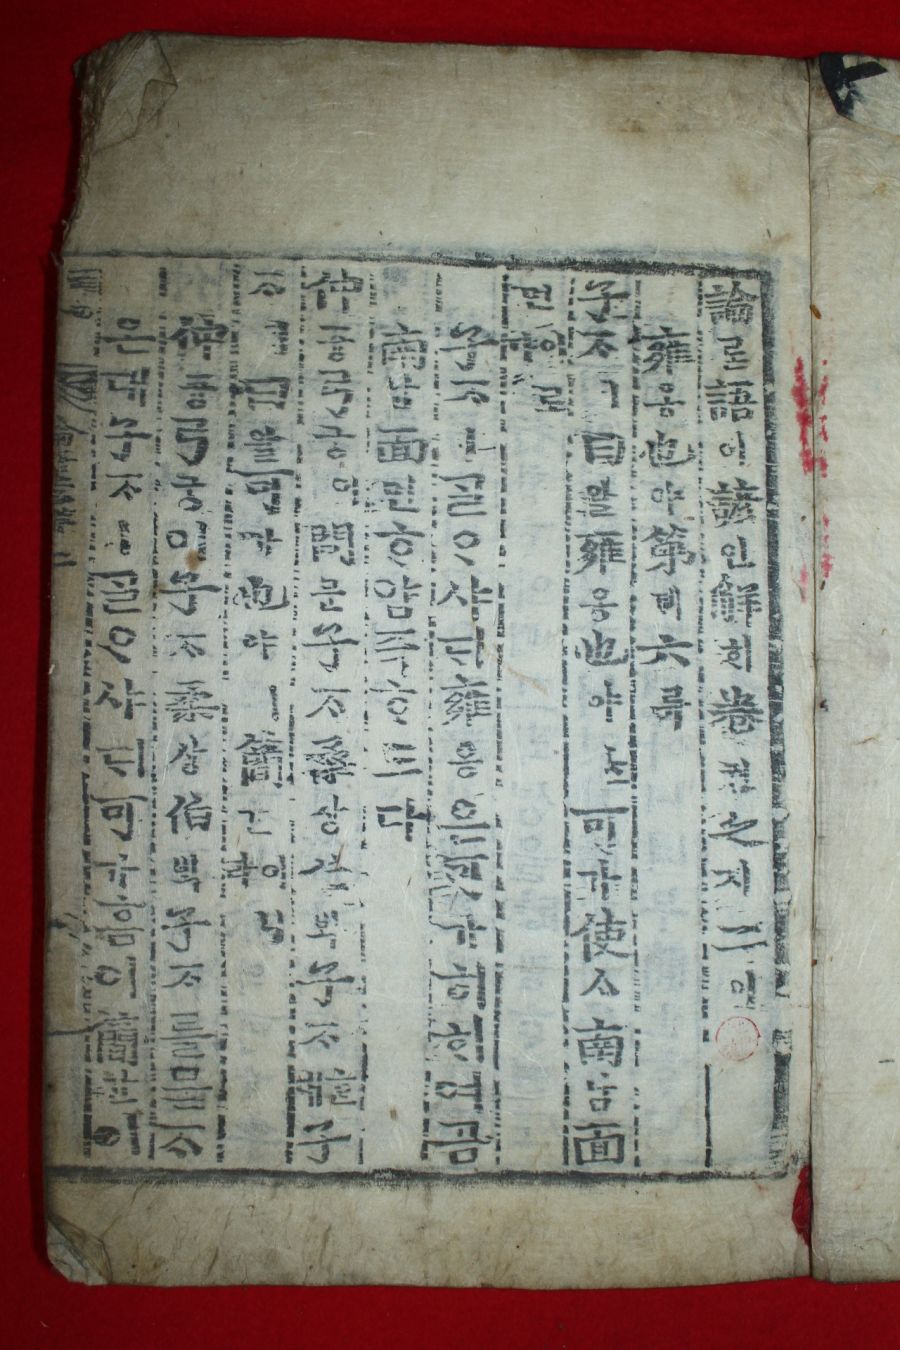 論론語어諺언解ᄒᆡ卷권之지二이
雍옹也야第뎨六륙
子ᄌᆞ曰왈雍옹也야ᄂᆞᆫ可가使ᄉᆞ南남面
면이로다
子ᄌᆞㅣᄀᆞᆯᄋᆞ샤ᄃᆡ雍옹은可가히ᄒᆞ여곰
南남面면ᄒᆞ암즉ᄒᆞ도다
仲듕弓궁이問문子ᄌᆞ桑상伯ᄇᆡᆨ子ᄌᆞᄒᆞᆫ대子
ᄌᆞㅣ曰왈可가也야ㅣ簡간이니라
仲듕弓궁이子ᄌᆞ桑상伯ᄇᆡᆨ子ᄌᆞ를묻ᄌᆞ
온대子ᄌᆞㅣᄀᆞᆯᄋᆞ샤ᄃᆡ可가홈이簡간